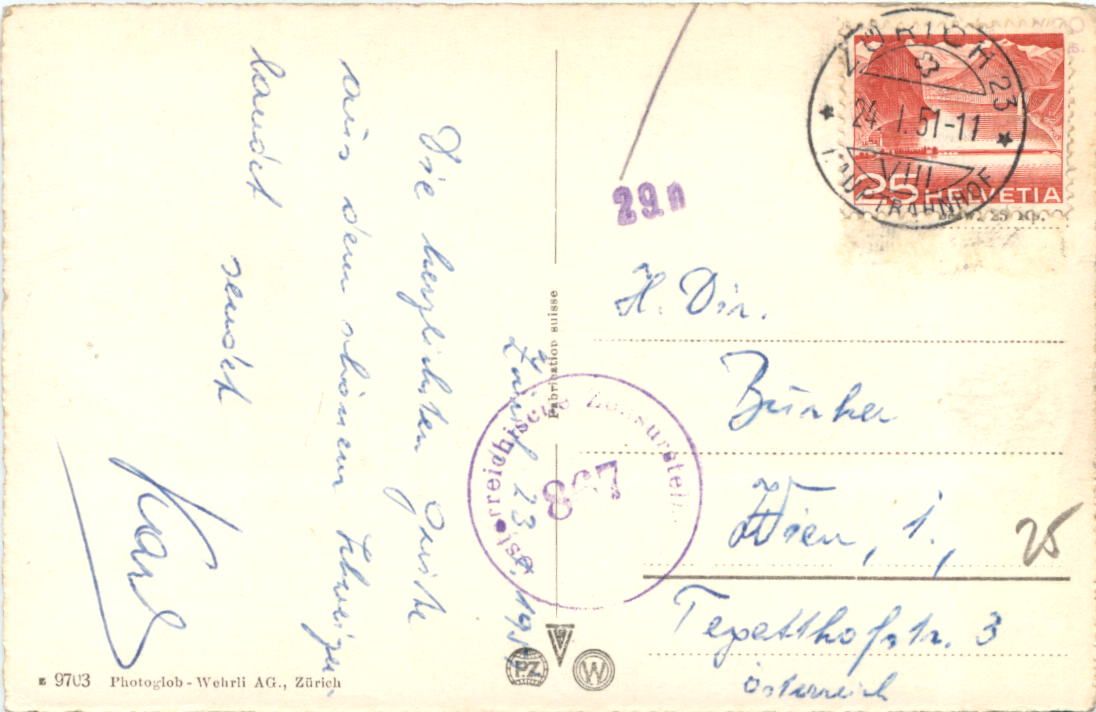 Zürich 23.I.1951
Die herzlichsten Grüße
aus dem schönem Schweizer-
landet
sendet
Karl
z 9703 Photoglob-Wehrli AG., Zürich
Fabrication suisse
PZ
W
Österreichische Zensurstelle
867
29n
ZÜRICH 23
24. I. 51-11
VIII
HAUPTBAHNHOF
25 HELVETIA
H. Dir.
Wien, 1.,
25
Tegetthofstr. 3
Österreich